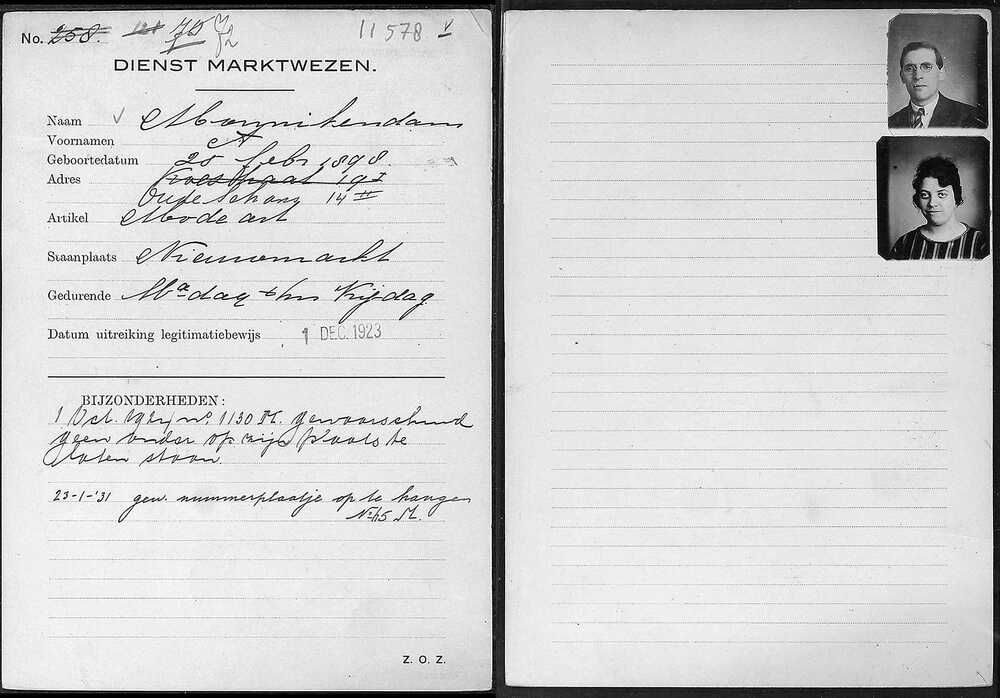 No. 258. 128 75 72
11578 V
DIENST MARKTWEZEN.
Naam V Monnikendam
Voornamen A
Geboortedatum 25 febr 1898.
Adres 19 I
Oude Schans 14 II
Artikel Mode art
Staanplaats Nieuwmarkt
Gedurende Madag t/m Vrijdag
Datum uitreiking legitimatiebewijs 1 DEC. 1923
BIJZONDERHEDEN:
1 Oct. no. 1130 M. gewaarschuwd
geen ander op zijn plaats te
laten staan.
23-1-'31 gew. nummerplaatje op te hangen
No 45 M.
Z. O. Z.